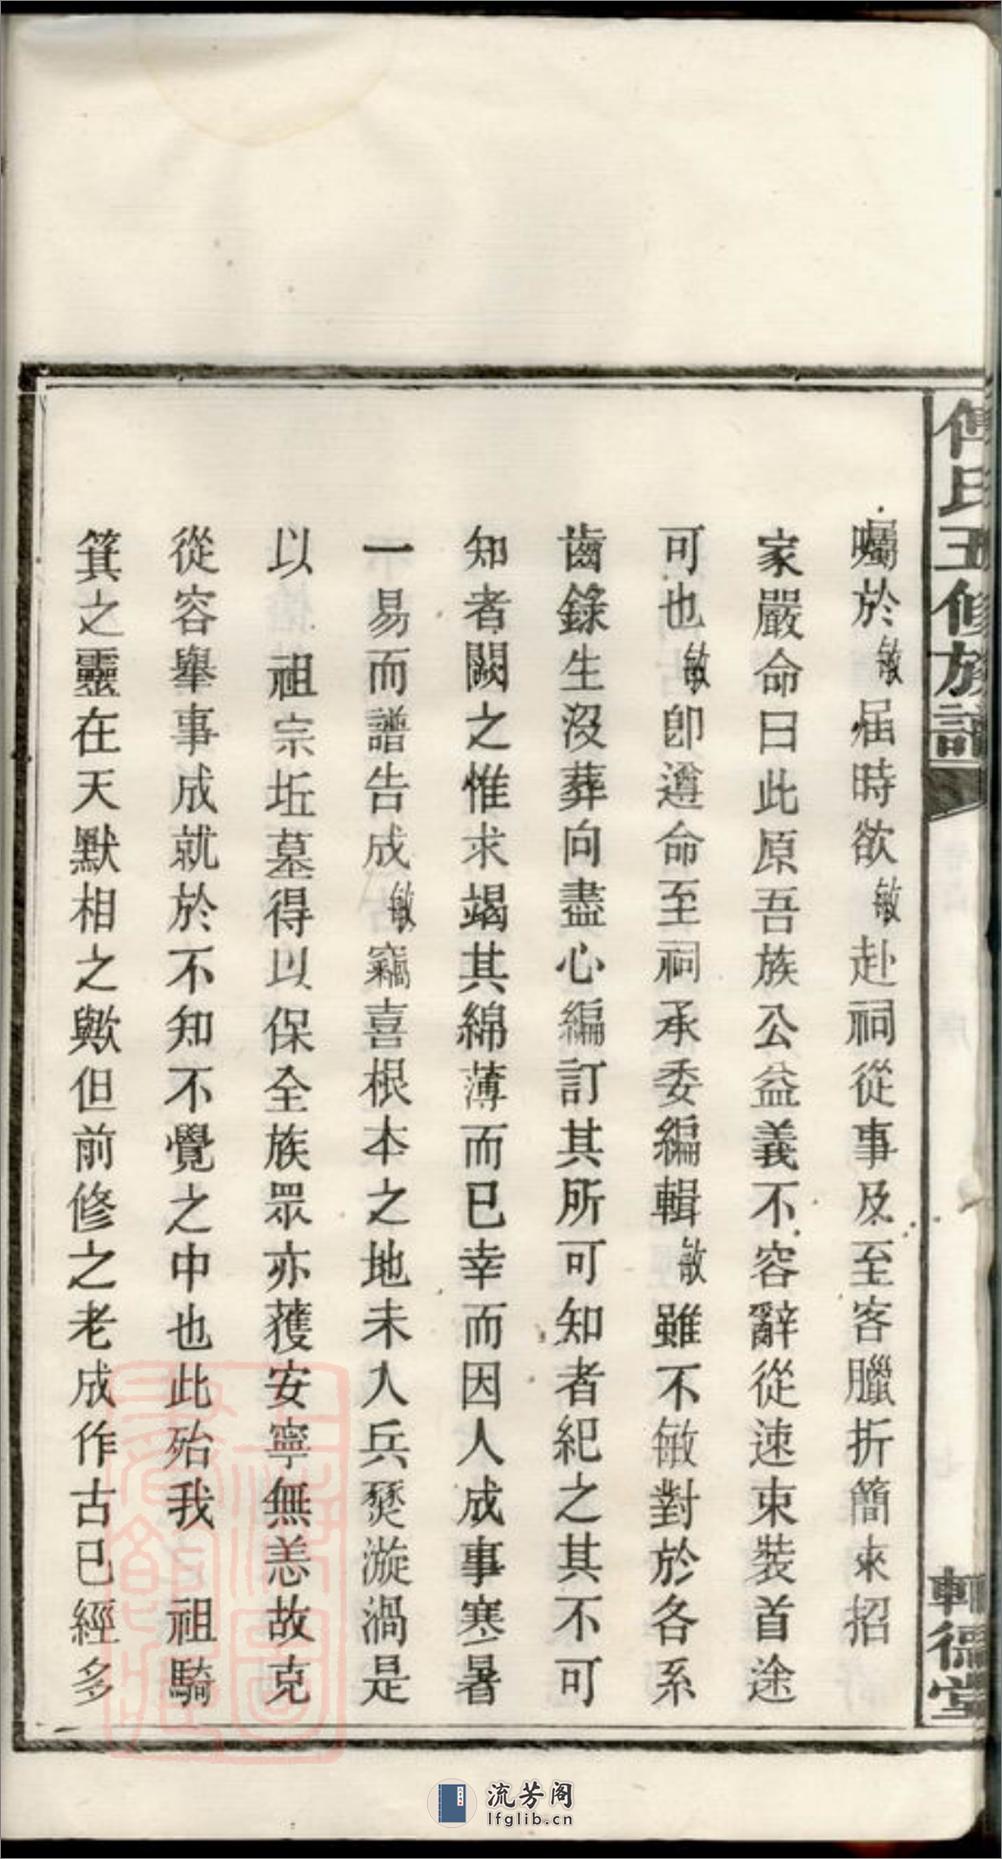 傅氏五修族譜
囑於敏屆時欲敏赴祠從事及至客臘折簡來招
家嚴命曰此原吾族公益義不容辭從速束裝首途
可也敏卽遵命至祠承委編輯敏雖不敏對於各系
齒錄生沒葬向盡心編訂其所可知者紀之其不可
知者闕之惟求竭其綿薄而已幸而因人成事寒暑
一易而譜告成敏竊喜根本之地未入兵燹漩渦是
以祖宗坵墓得以保全族眾亦獲安寧無恙故克
從容舉事成就於不知不覺之中也此殆我祖騎
箕之靈在天默相之歟但前修之老成作古已經多
流芳阁
lfglib.cn